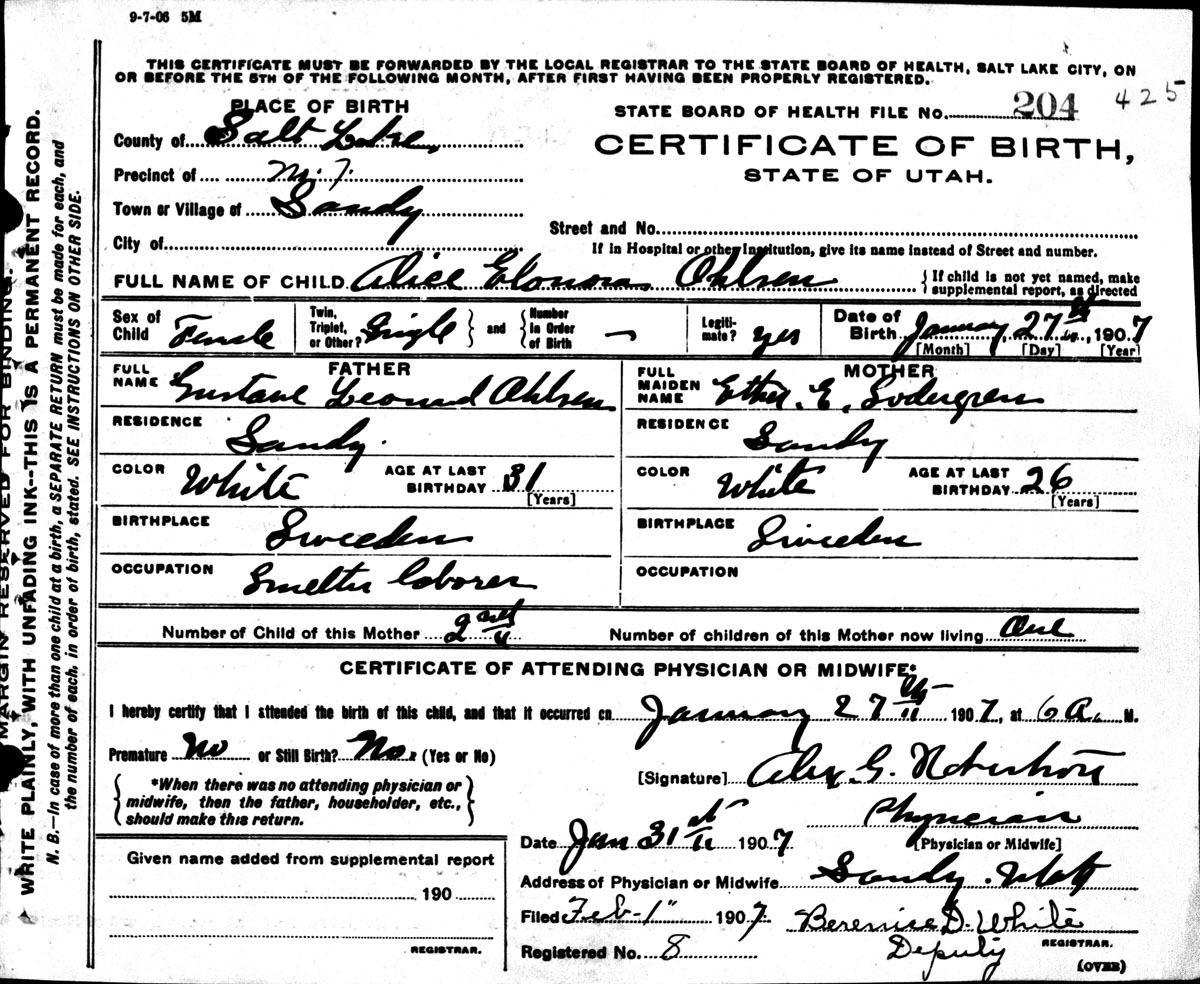 9-7-06 5M
THIS CERTIFICATE MUST BE FORWARDED BY THE LOCAL REGISTRAR TO THE STATE BOARD OF HEALTH, SALT LAKE CITY, ON
OR BEFORE THE 5TH OF THE FOLLOWING MONTH, AFTER FIRST HAVING BEEN PROPERLY REGISTERED.
MARGIN RESERVED FOR BINDING.
WRITE PLAINLY, WITH UNFADING INK--THIS IS A PERMANENT RECORD.
N. B.—In case of more than one child at a birth, a SEPARATE RETURN must be made for each, and
the number of each, in order of birth, stated. SEE INSTRUCTIONS ON OTHER SIDE.
PLACE OF BIRTH
County of Salt Lake,
Precinct of
Town or Village of Sandy
City of
STATE BOARD OF HEALTH FILE No. 204 425
CERTIFICATE OF BIRTH,
STATE OF UTAH.
Street and No.
If in Hospital or other Institution, give its name instead of Street and number.
FULL NAME OF CHILD Alice Elonora Ohlsen { If child is not yet named, make supplemental report, as directed
Sex of Child Female
Twin, Triplet, or Other? Single } and { Number in Order of Birth —
Legitimate? yes
Date of Birth January, 27th, 1907
[Month] [Day] [Year]
FATHER
FULL NAME Gustave Leonard Ohlsen
RESIDENCE Sandy.
COLOR White AGE AT LAST BIRTHDAY 31 [Years]
BIRTHPLACE Sweeden
OCCUPATION Smelter laborer
MOTHER
FULL MAIDEN NAME Esther. E. Sodergren
RESIDENCE Sandy
COLOR White AGE AT LAST BIRTHDAY 26 [Years]
BIRTHPLACE Sweeden
OCCUPATION
Number of Child of this Mother 2nd Number of children of this Mother now living One
CERTIFICATE OF ATTENDING PHYSICIAN OR MIDWIFE*
I hereby certify that I attended the birth of this child, and that it occurred on January 27th 1907, at 6 A. M.
Premature No or Still Birth? No. (Yes or No)
{ *When there was no attending physician or
midwife, then the father, householder, etc.,
should make this return. }
[Signature] Alex. G. Robertson
Physician
[Physician or Midwife]
Date Jan 31st 1907
Address of Physician or Midwife Sandy. Utah
Filed Feb-1" 1907 Berenice D. White
Deputy REGISTRAR.
Registered No. 8
Given name added from supplemental report
190
REGISTRAR.
(OVER)